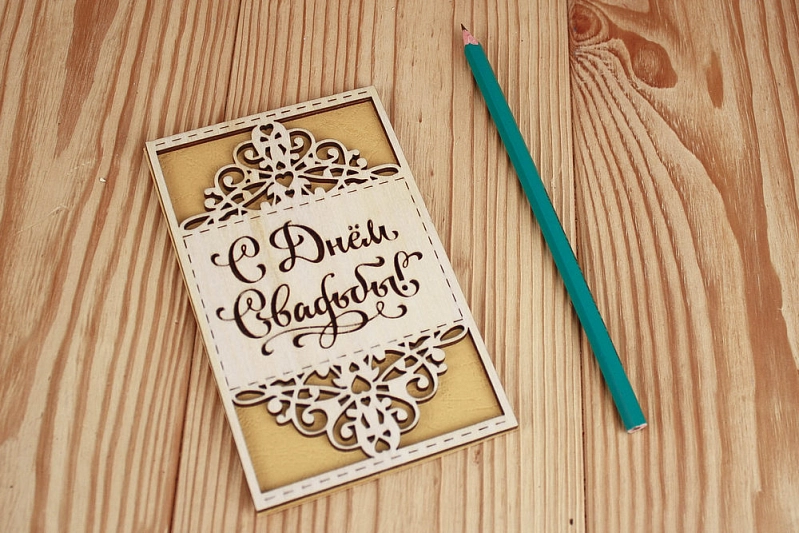 С Днём
Свадьбы!